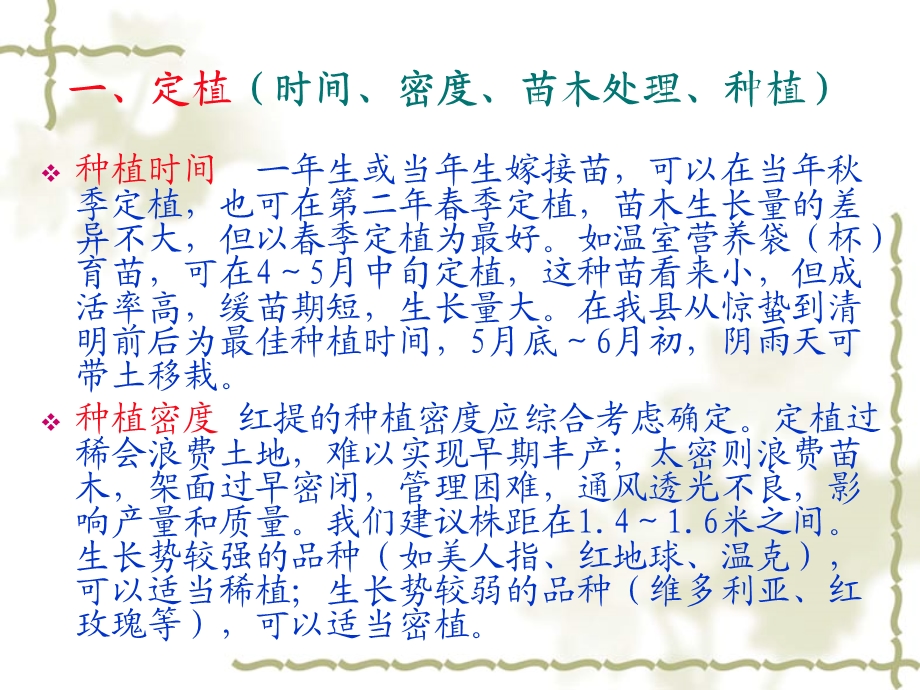 一、定植（时间、密度、苗木处理、种植）
种植时间 一年生或当年生嫁接苗，可以在当年秋
季定植，也可在第二年春季定植，苗木生长量的差
异不大，但以春季定植为最好。如温室营养袋（杯）
育苗，可在4～5月中旬定植，这种苗看来小，但成
活率高，缓苗期短，生长量大。在我县从惊蛰到清
明前后为最佳种植时间，5月底～6月初，阴雨天可
带土移栽。
种植密度 红提的种植密度应综合考虑确定。定植过
稀会浪费土地，难以实现早期丰产；太密则浪费苗
木，架面过早密闭，管理困难，通风透光不良，影
响产量和质量。我们建议株距在1.4～1.6米之间。
生长势较强的品种（如美人指、红地球、温克），
可以适当稀植；生长势较弱的品种（维多利亚、红
玫瑰等），可以适当密植。